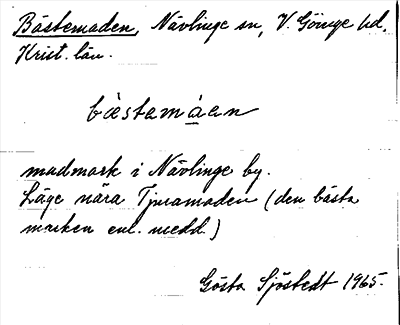 Bästemaden, Nävlinge sn, V. Göinge hd,
Krist. län.
bästemáen
madmark i Nävlinge by.
Läge nära Tjuramaden (den bästa
marken enl. medd.)
Gösta Sjöstedt 1965.